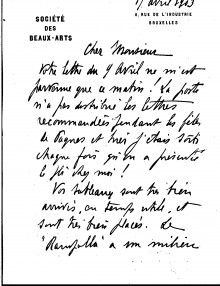 17 avril 1903
SOCIÉTÉ
DES
BEAUX-ARTS
9, RUE DE L'INDUSTRIE
BRUXELLES
Cher Monsieur
Votre lettre du 9 Avril ne m'est
parvenue que ce matin ! La poste
n'a pas distribué les lettres
recommandées pendant les fêtes
de Pâques et hier j'étais sorti
chaque fois qu'on a présenté
le pli chez moi !
Vos tableaux sont très bien
arrivés, en temps utile, et
sont très bien placés. Le
"Rampolla" a son milieu